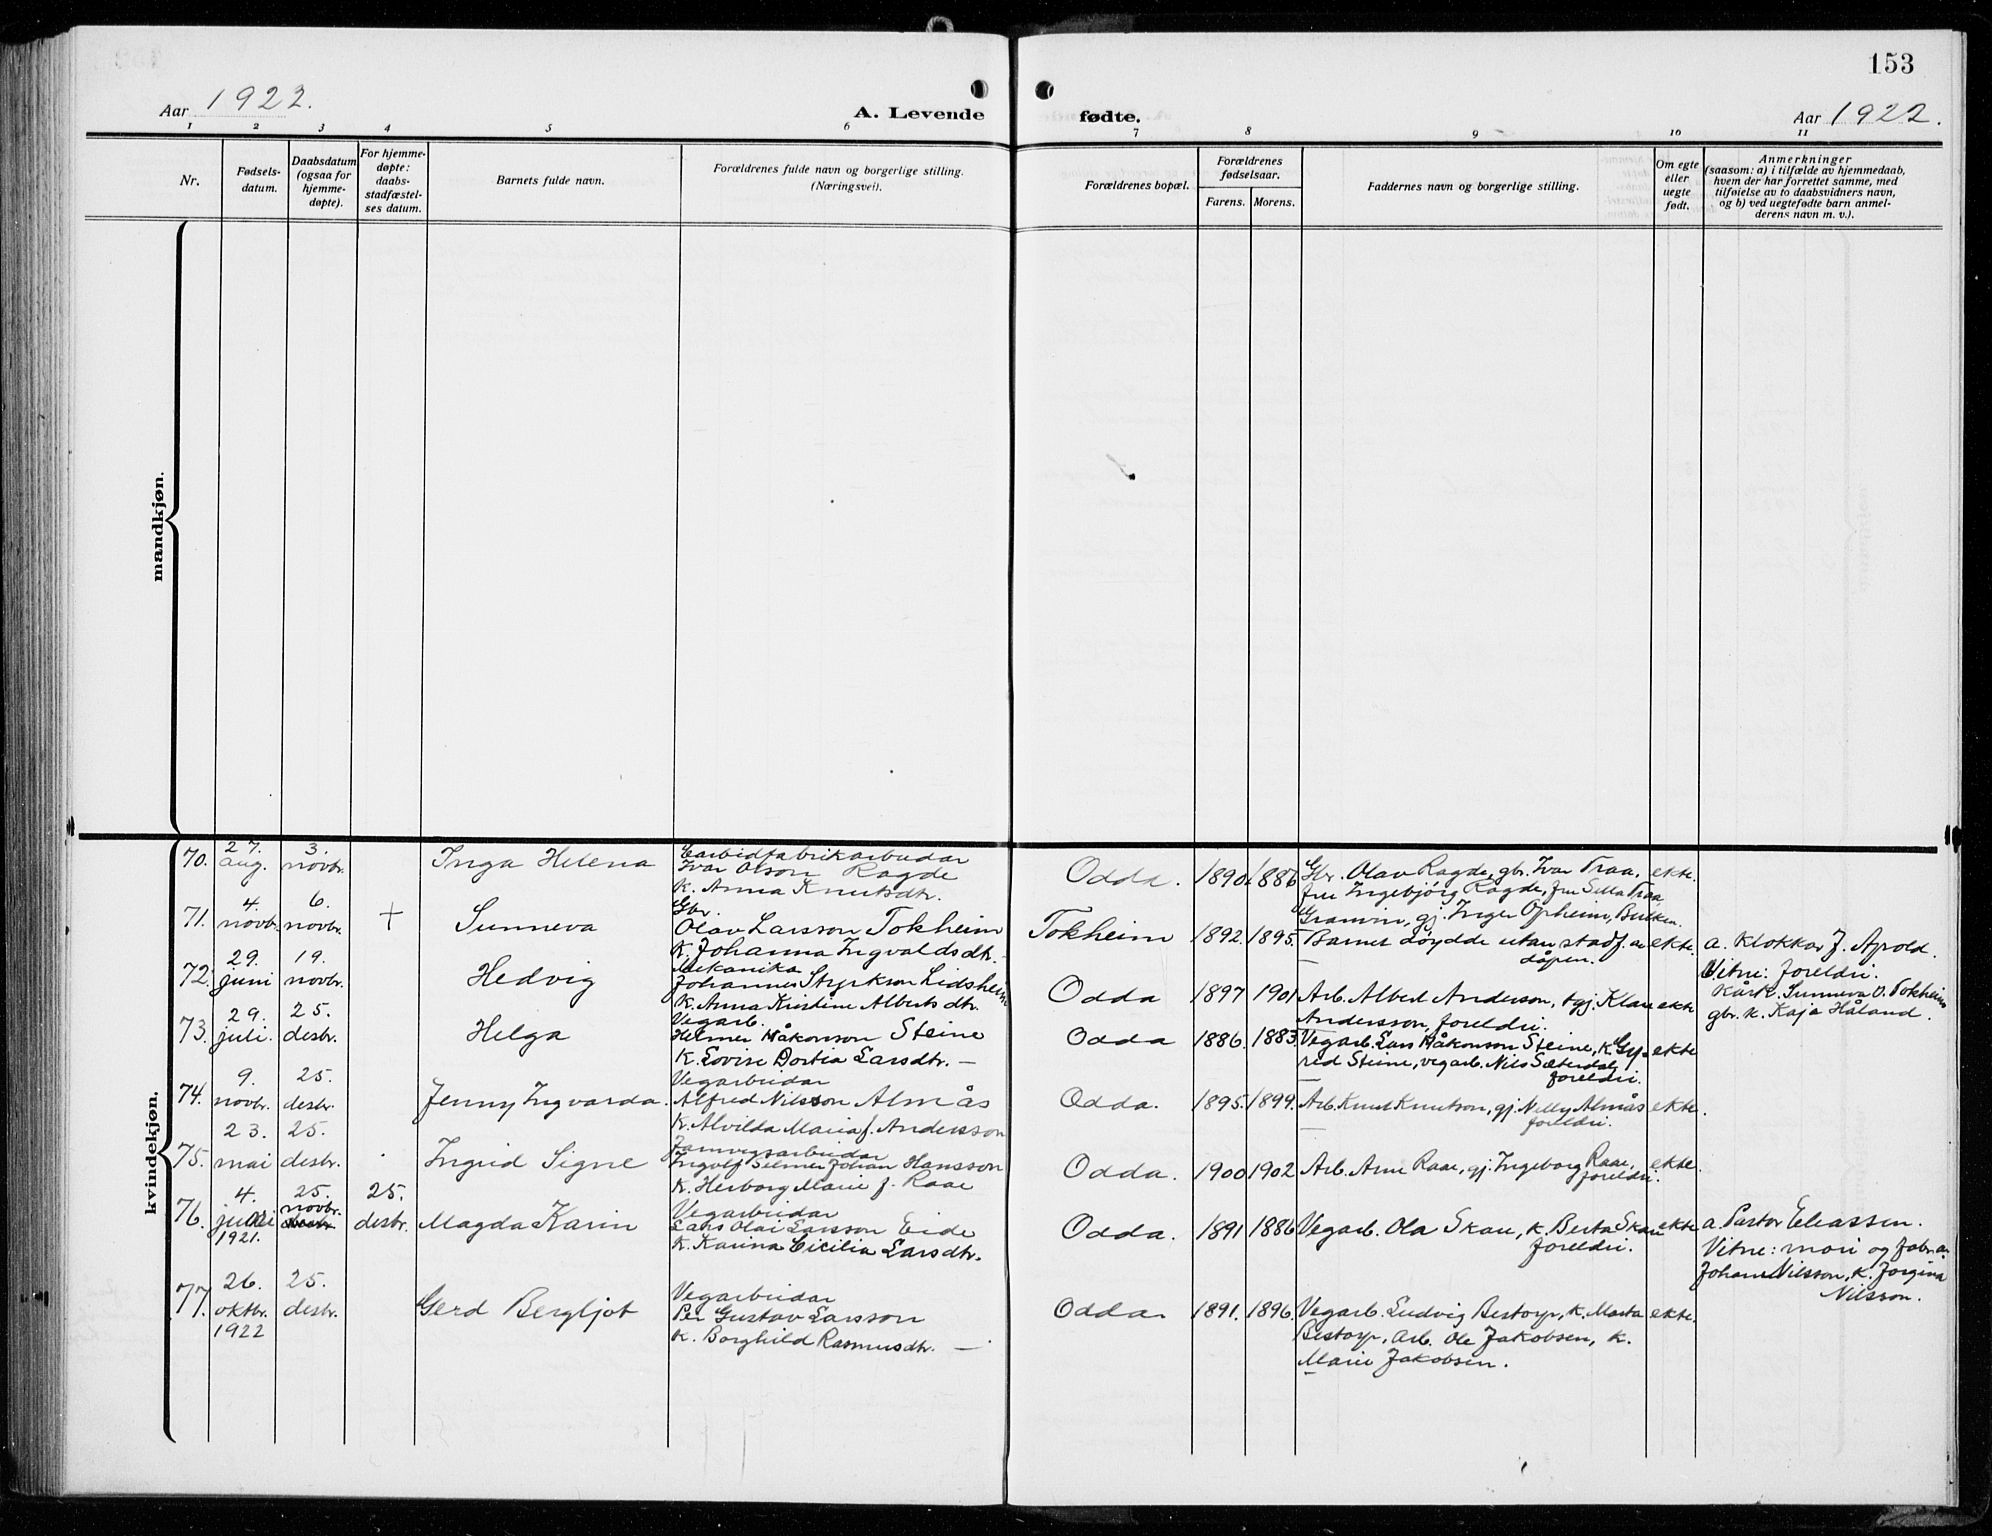 153
Aar 1922.
A. Levende
fødte.
Aar 1922.
1 2 3 4 5 6 7 8 9 10 11
Nr.
Fødsels-
datum.
Daabsdatum
(ogsaa for
hjemme-
døpte).
For hjemme-
døpte:
daabs-
stadfæstel-
ses datum.
Barnets fulde navn.
Forældrenes fulde navn og borgerlige stilling.
(Næringsvei).
Forældrenes bopæl.
Forældrenes
fødselsaar.
Farens. Morens.
Faddernes navn og borgerlige stilling.
Om egte
eller
uegte
født.
Anmerkninger
(saasom: a) i tilfælde av hjemmedaab,
hvem der har forrettet samme, med
tilføielse av to daabsvidners navn,
og b) ved uegtefødte barn anmel-
derens navn m. v.).
mandkjøn.
kvindekjøn.
70.
27.
aug.
3.
novbr.
Inga Helena
Carbidfabrikarbeidar
Ivar Olson Ragde
k. Anna Knutsdtr.
Odda. 1890. 1886
Gbr. Olav Ragde, gbr. Ivar Traa,
fru Ingebjörg Ragde, fru Silla Traa,
Granvin, gj. Inger Opheim, Bulken.
ekte.
71.
4.
novbr.
6.
novbr.
+
Sunneva
Gbr.
Olav Larsson Tokheim
k. Johanna Ingvaldsdtr. –
Tokheim 1892. 1895.
Barnet döydde utan stadf. av
dåpen.
ekte.
a. Klokkar J. Apold.
Vitne: foreldri.
Kårk. Sunneva O. Tokheim
gbr. k. Kaja Håland.
72.
29.
juni
19.
novbr.
Hedvig
Mekanikar
Johannes Styrkson Lidsheim
k. Anna Kristine Alberts dtr.
Odda 1897 1901
Arb. Albert Anderson, gj. Klara
Andersson, foreldri.
ekte
73.
29.
juli.
25.
desbr.
Helga
Vegarb.
Helmer Håkonson Steine
k. Lovise Dortia Larsdtr. –
Odda 1886. 1883.
Vegarb. Lars Håkonson Steine, k. Gy-
red Steine, vegarb. Nils Sæterdal,
foreldri.
ekte
74.
9.
novbr.
25.
desbr.
Jenny Ingvarda.
Vegarbeidar
Alfred Nilsson Almås
k. Alvilda Maria f. Andersson
Odda. 1895. 1899.
Arb. Knut Knutson, gj. Nelly Almås
foreldri.
ekte.
75.
23.
mai
25.
desbr.
Ingrid Signe
Jarnvegsarbeidar
Ingolf Selmer Johan Hansson
k. Herborg Marie f. Raae
Odda. 1900 1902
Arb. Arne Raae, gj. Ingeborg Raae,
foreldri.
ekte.
76.
4.
juli
1921.
25.
novbr.
25.
desbr.
Magda Karin
Vegarbeidar
Lars Olai Larsson Eide
k. Karina Cicilia Larsdtr.
Odda. 1891 1886
Vegarb. Ola Skare, k. Berta Skare
foreldri.
ekte
a. Pastor Eliassen.
Vitne: mori og fabr. a.
Johan Nilsson, k. Jorgina
Nilsson.
77.
26.
oktbr.
1922
25.
desbr.
Gerd Bergljot
Vegarbeidar
Per Gustav Larsson
k. Borghild Rasmusdtr. –
Odda 1891. 1896.
Vegarb. Ludvig Bestorp, k. Marta
Bestorp, arb. Ole Jakobsen, k.
Marie Jakobsen.
ekte.